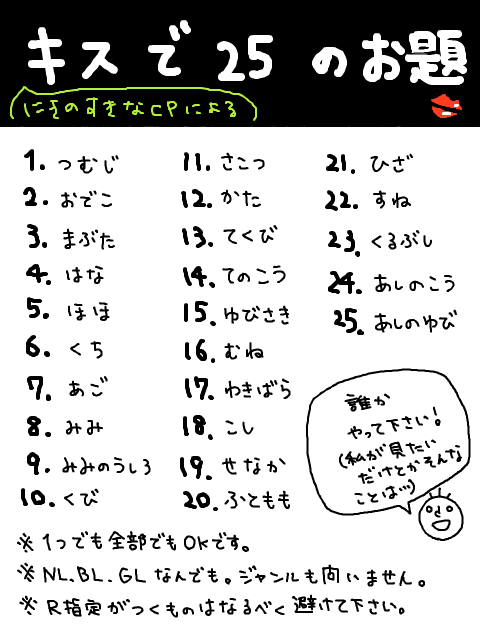 キスで25のお題
にそのすきなCPによる
1. つむじ
2. おでこ
3. まぶた
4. はな
5. ほほ
6. くち
7. あご
8. みみ
9. みみのうしろ
10. くび
11. さこつ
12. かた
13. てくび
14. てのこう
15. ゆびさき
16. むね
17. わきばら
18. こし
19. せなか
20. ふともも
21. ひざ
22. すね
23. くるぶし
24. あしのこう
25. あしのゆび
誰か
やって下さい!
(私が見たい
だけとかそんな
ことは…)
※1つでも全部でもOKです。
※NL.BL.GLなんでも。ジャンルも問いません。
※R指定がつくものはなるべく避けて下さい。